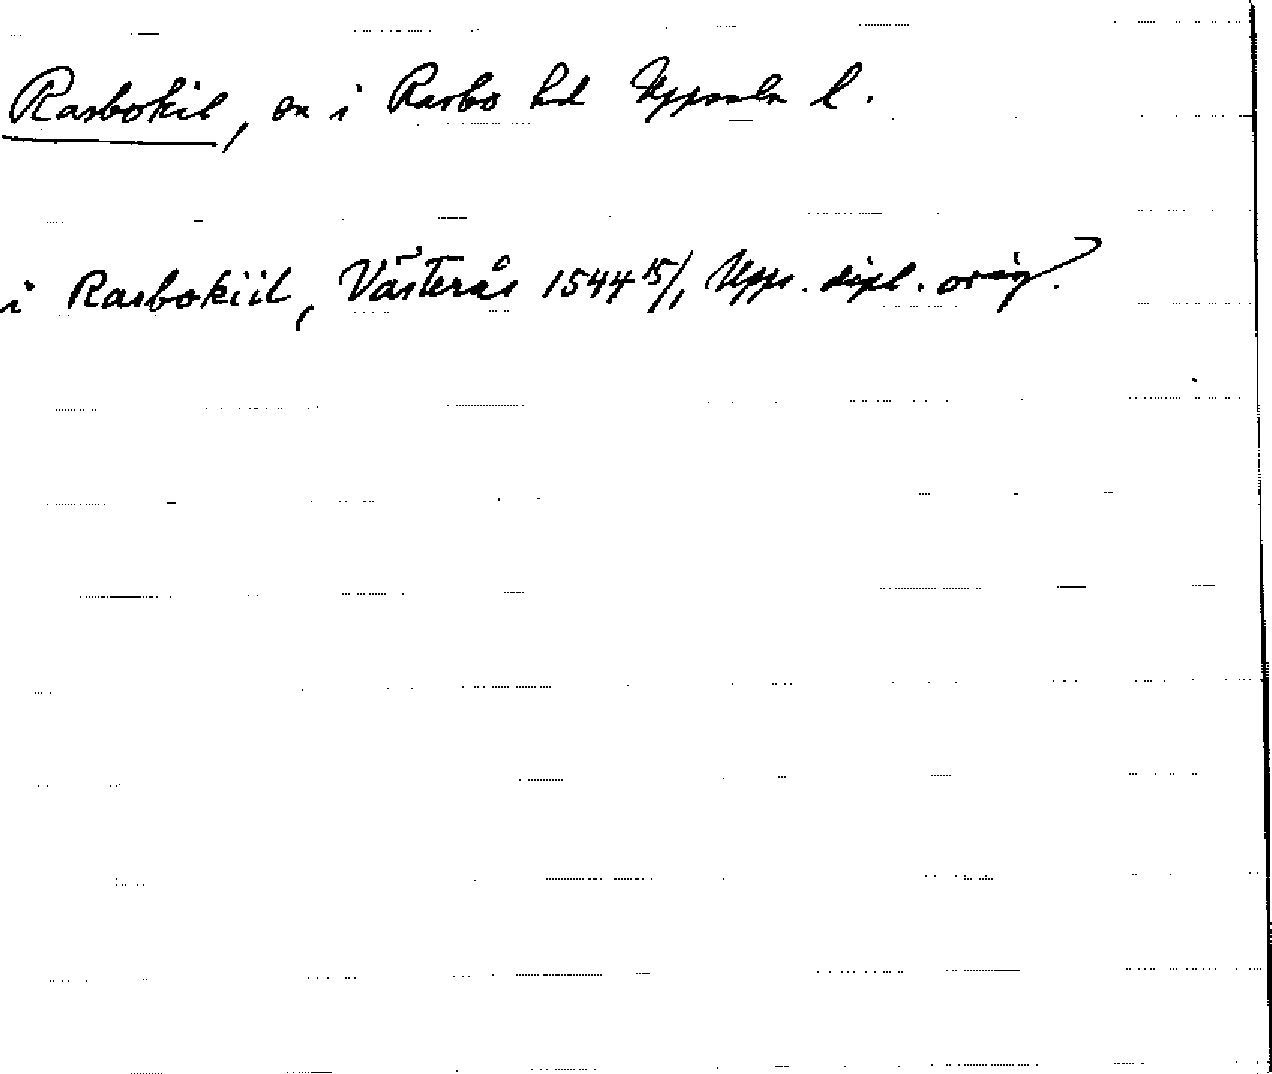 Rasbokil, sn i Rasbo hd Uppsala l.
i Rasbokiil, Västerås 1544 15/1, Upps. dipl. orig.